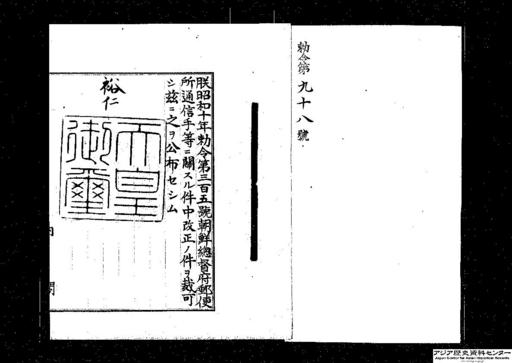 勅令第九十八號
朕昭和十年勅令第三百五號朝鮮總督府郵便
所通信手等ニ關スル件中改正ノ件ヲ裁可
シ茲ニ之ヲ公布セシム
裕仁
天皇
御璽
内
閣
アジア歴史資料センター
Japan Center for Asian Historical Records